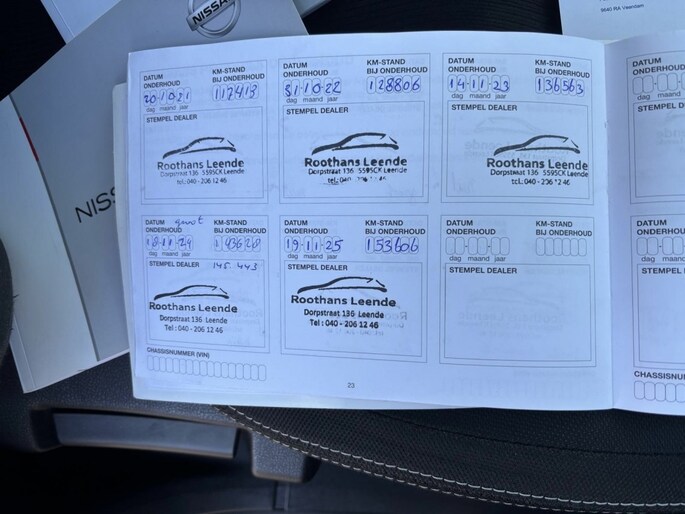 NISSAN
9640 RA Veendam
NISS
DATUM ONDERHOUD
KM-STAND BIJ ONDERHOUD
20 10 21
117413
dag maand jaar
STEMPEL DEALER
Roothans Leende
Dorpstraat 136 5595CK Leende
tel.: 040 - 206 12 46
DATUM ONDERHOUD
KM-STAND BIJ ONDERHOUD
31 10 22
128806
dag maand jaar
STEMPEL DEALER
Roothans Leende
Dorpstraat 136 5595CK Leende
DATUM ONDERHOUD
KM-STAND BIJ ONDERHOUD
14 11 23
136563
dag maand jaar
STEMPEL DEALER
Roothans Leende
Dorpstraat 136 5595CK Leende
tel.: 040 - 206 12 46
DATUM
ONDERHOUD
KM-STAND BIJ ONDERHOUD
dag maand jaar
STEMPEL DEALER
145 443
Roothans Leende
Dorpstraat 136 Leende
Tel : 040 - 206 12 46
CHASSISNUMMER (VIN)
DATUM ONDERHOUD
KM-STAND BIJ ONDERHOUD
19 11 25
153606
dag maand jaar
STEMPEL DEALER
Roothans Leende
Dorpstraat 136 Leende
Tel : 040 - 206 12 46
DATUM ONDERHOUD
KM-STAND BIJ ONDERHOUD
dag maand jaar
STEMPEL DEALER
23
DATUM
ONDERHOUD
dag maand
STEMPEL DE
DATUM
ONDERHOUD
dag maand
STEMPEL D
CHASSISNUM